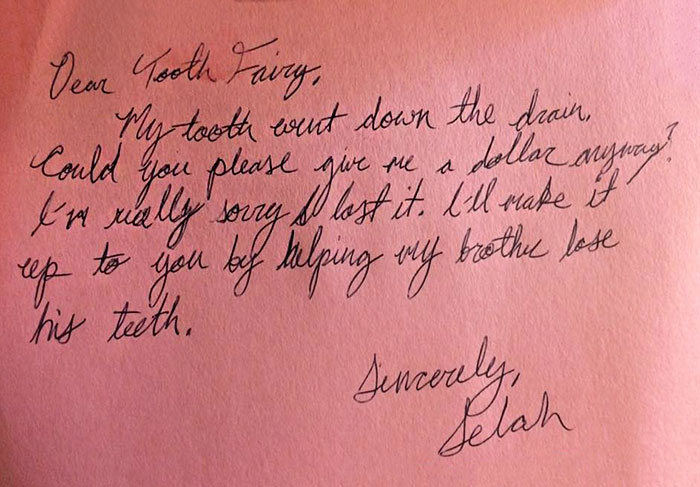 Dear Tooth Fairy,
My tooth went down the drain.
Could you please give me a dollar anyway?
I'm really sorry I lost it. I'll make it
up to you by helping my brother lose
his teeth.
Sincerely,
Selah